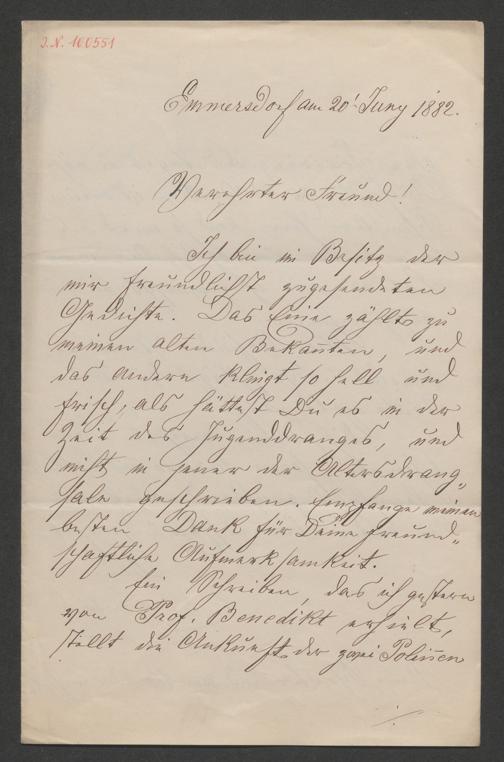 J.N. 100551
Emmersdorf am 20t Juny 1882.
Verehrter Freund!
Ich bin im Besitz der
mir freundlichst zugesendeten
Gedichte. Das Eine zählt zu
meinen alten Bekannten, und
das andere klingt so hell und
frisch, als hättest Du es in der
Zeit des Jugenddranges, und
nicht in jener der Altersdrang„
sale geschrieben. Empfange meinen
besten Dank für Deine freund„
schaftliche Aufmerksamkeit.
Ein Schreiben, das ich gestern
von Prof. Benedikt erhielt,
stellt die Ankunft der zwei Polinen